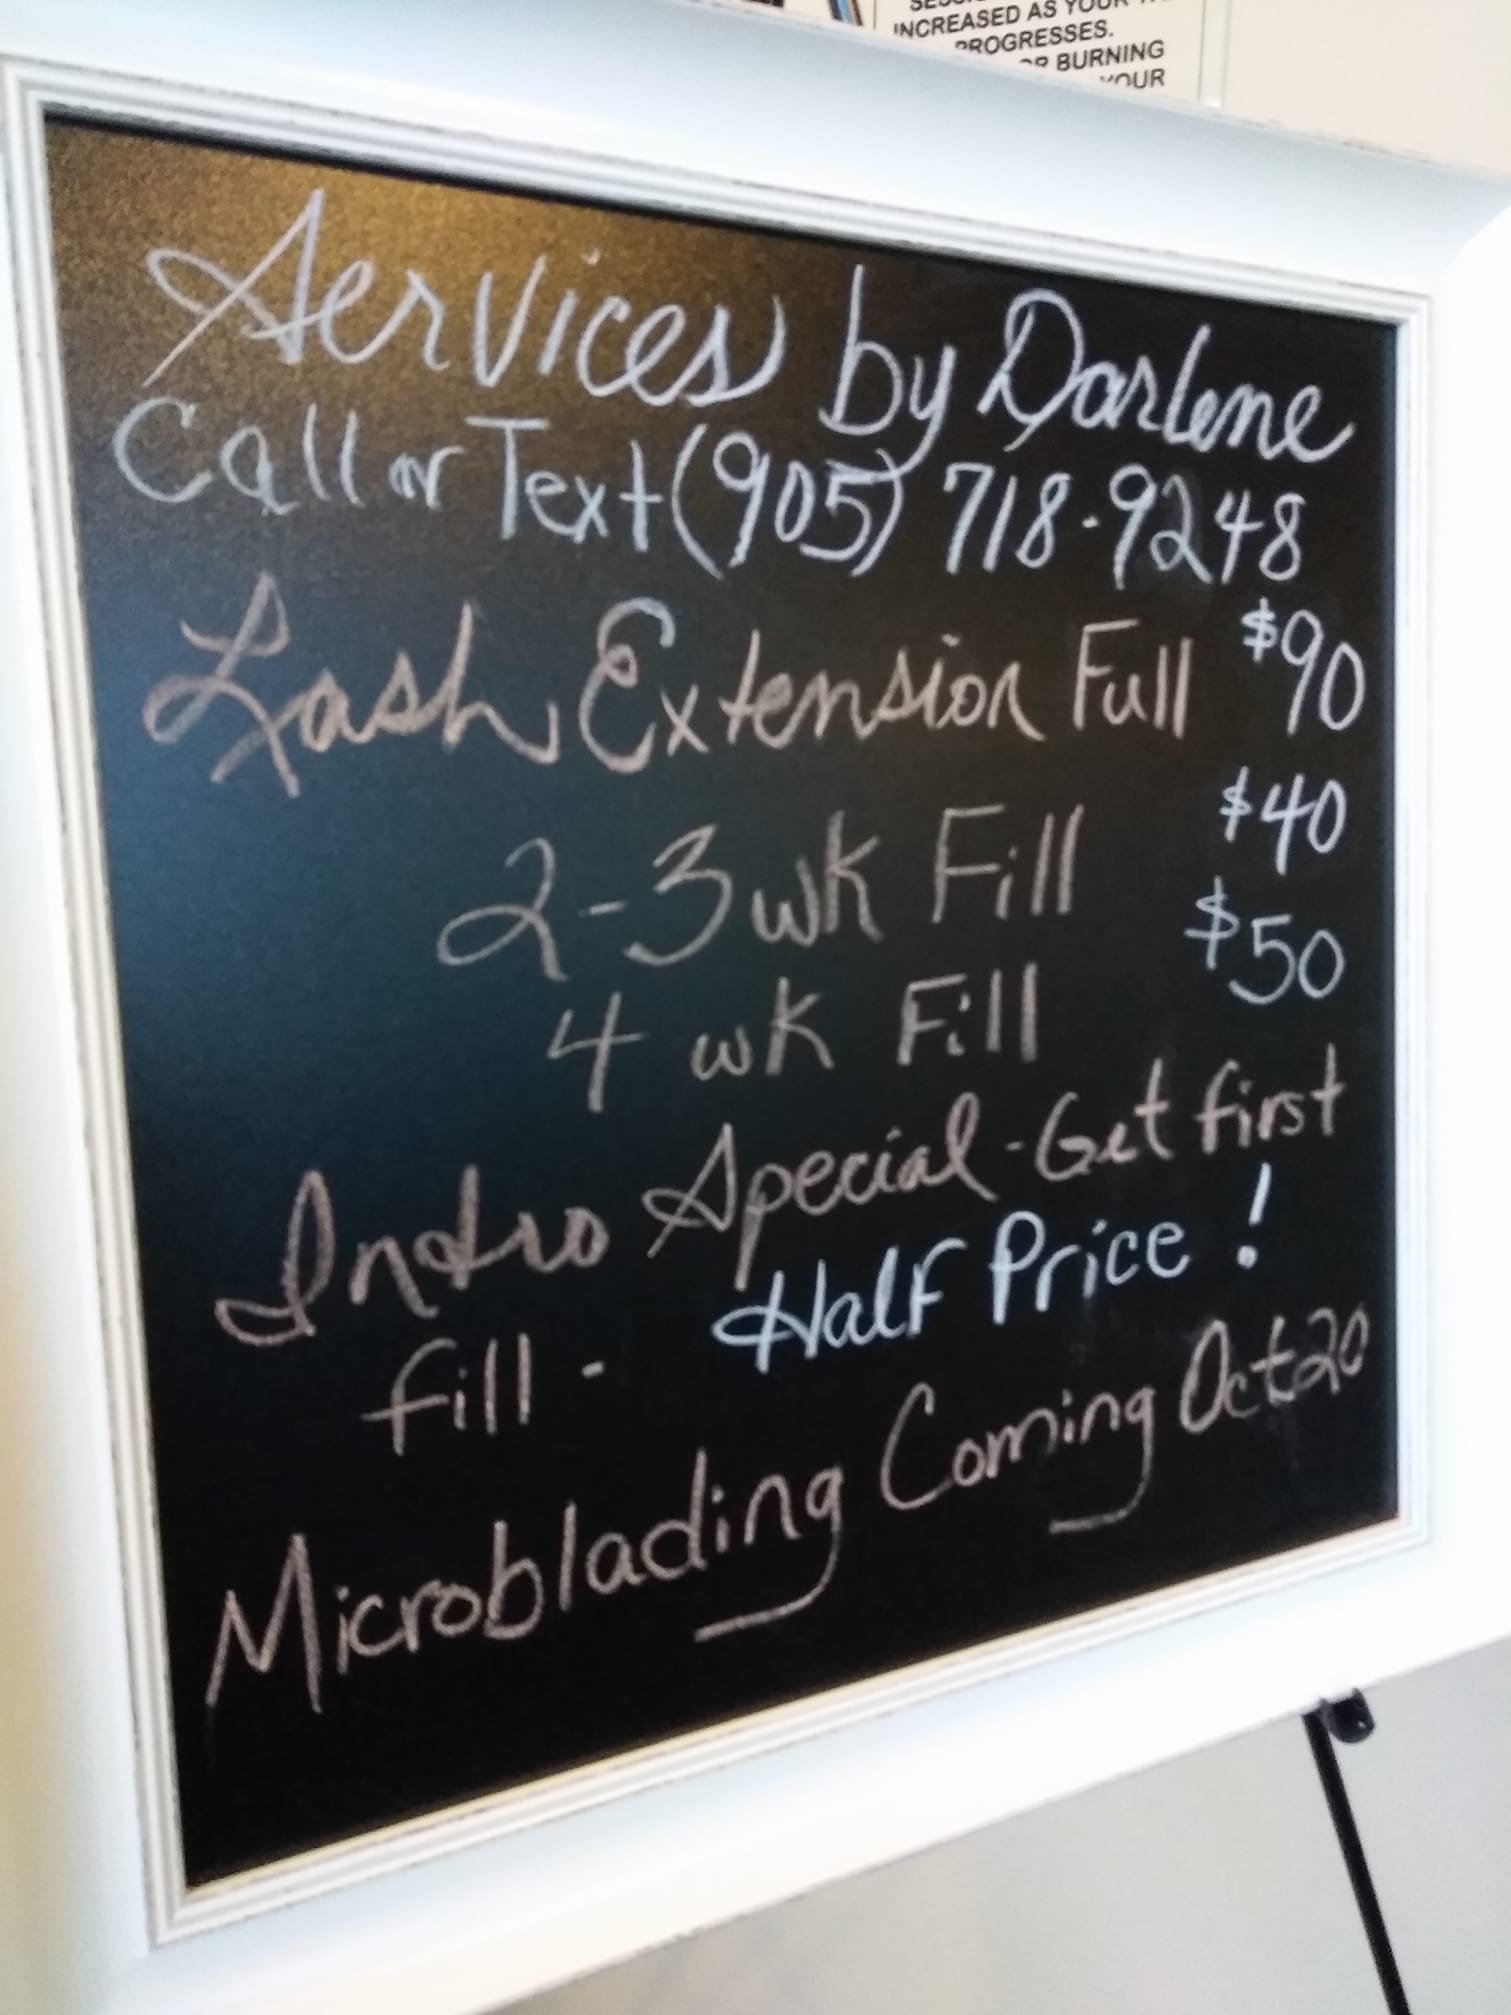 INCREASED AS YOUR
PROGRESSES.
OR BURNING
YOUR
Services by Darlene
Call or Text (905) 718-9248
Lash Extension Full $90
2-3 wk Fill $40
4 wk Fill $50
Intro Special - Get first
fill - Half Price!
Microblading Coming Oct 20